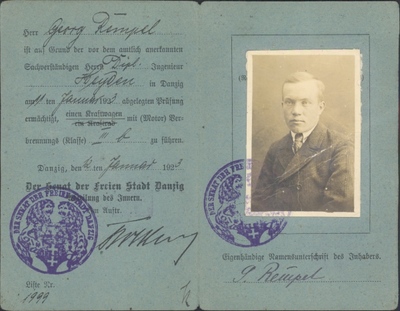 Herr Georg Rempel
ist auf Grund der vor dem amtlich anerkannten
Sachverständigen Herrn Dipl. Ingenieur
in Danzig
am ten Januar 1923 abgelegten Prüfung
ermächtigt, einen Kraftwagen
ein Kraftrad
mit (Motor) Ver-
brennungs (Klasse) III b zu führen.
Danzig, den ten Januar 1923
Der Senat der Freien Stadt Danzig
Abteilung des Innern.
Im Auftr.
Liste Nr.
1999
DER SENAT DER FREIEN STADT DANZIG
Eigenhändige Namensunterschrift des Inhabers.
G. Rempel